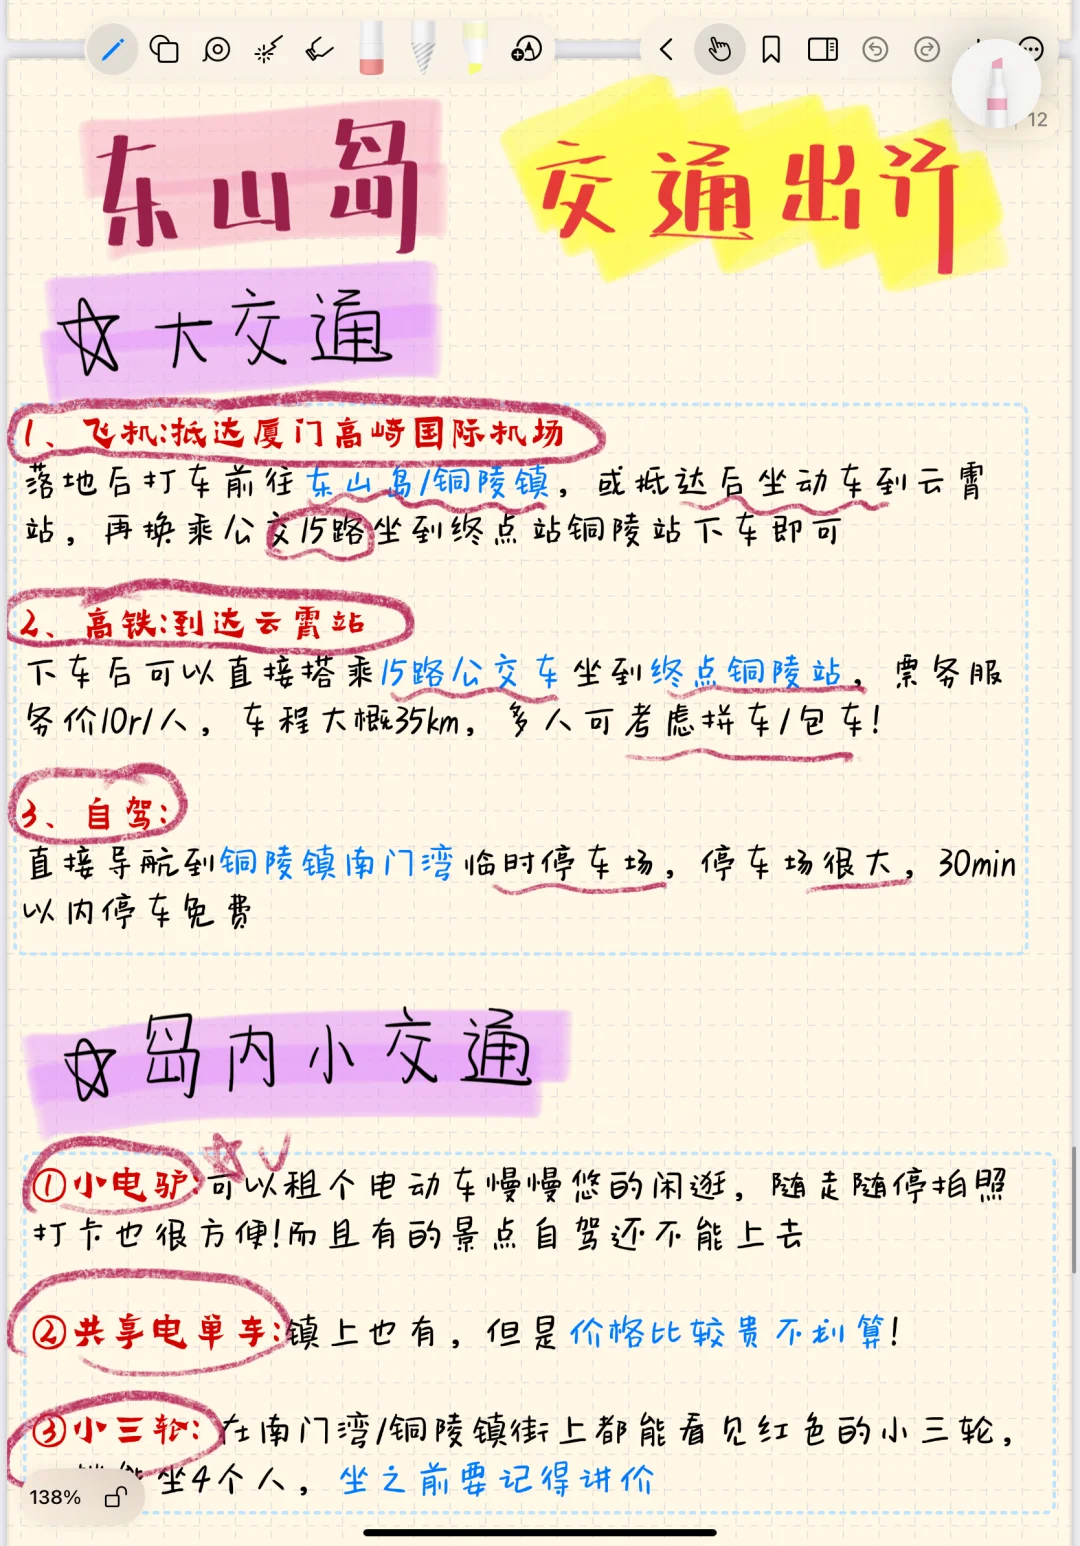 12
东山岛 交通出行
☆大交通
1、飞机:抵达厦门高崎国际机场
落地后打车前往东山岛/铜陵镇，或抵达后坐动车到云霄
站，再换乘公交15路坐到终点站铜陵站下车即可
2、高铁:到达云霄站
下车后可以直接搭乘15路公交车坐到终点铜陵站，票务服
务价10r/人，车程大概35km，多人可考虑拼车/包车!
3、自驾:
直接导航到铜陵镇南门湾临时停车场，停车场很大，30min
以内停车免费
☆岛内小交通
①小电驴:可以租个电动车慢慢悠的闲逛，随走随停拍照
打卡也很方便!而且有的景点自驾还不能上去
②共享电单车:镇上也有，但是价格比较贵不划算!
③小三轮:在南门湾/铜陵镇街上都能看见红色的小三轮，
坐4个人，坐之前要记得讲价
138%